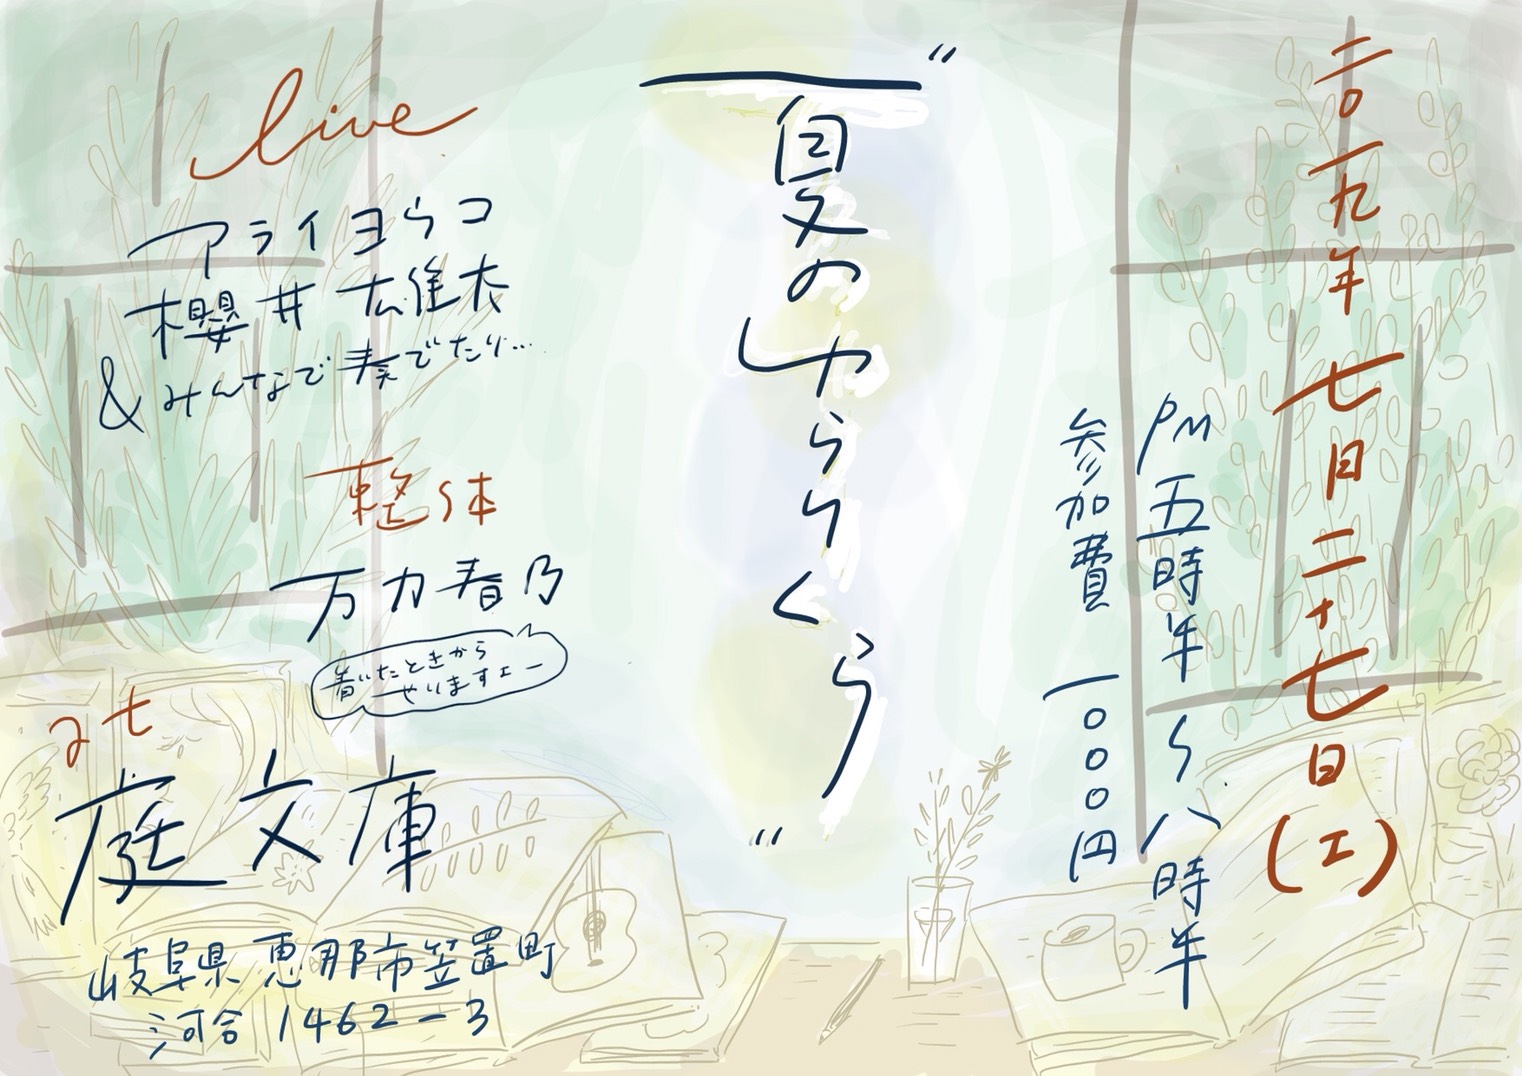 二〇一九年 七月二十七日(土)
PM五時半〜八時半
参加費 一〇〇〇円
"夏のゆらりくら"
live
アライヨウコ
櫻井 広雄大
&みんなで奏でたり…
整体
万力春乃
着いたときから
やりますエー
at
庭文庫
岐阜県恵那市笠置町
河合1462-3